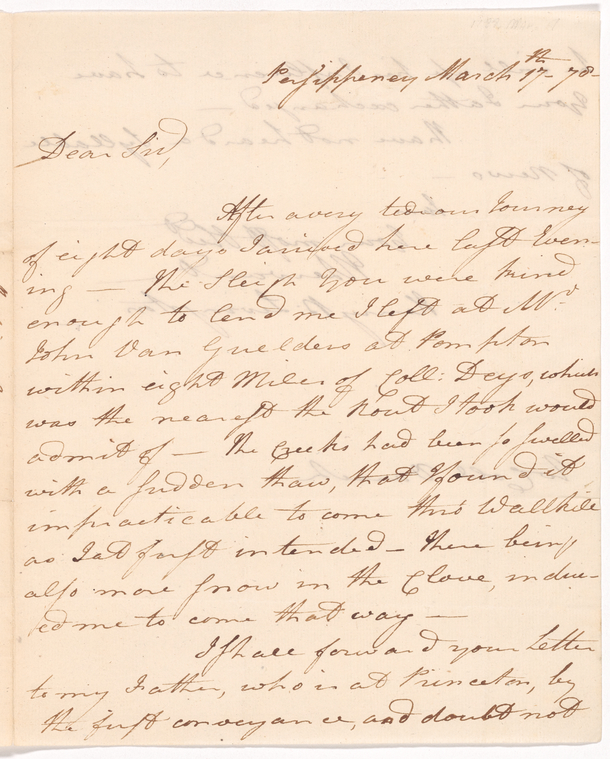 Persippeney March 17th - 78 -
Dear Sir,
After a very tedious Journey
of eight days I arrived here last Even-
ing — the Sleigh You were kind
enough to lend me I left at Mr.
John Van Guelders at Pompton
within eight Miles of Coll: Deys, which
was the nearest the Rout I took would
admit of — the Creeks had been so swelled
with a sudden thaw, that I found it
impracticable to come thro' Wallkile
as I at first intended — there being
also more snow in the Clove, induc-
ed me to come that way —
I shall forward your Letter
to my Father, who is at Princeton, by
the first conveyance, and doubt not